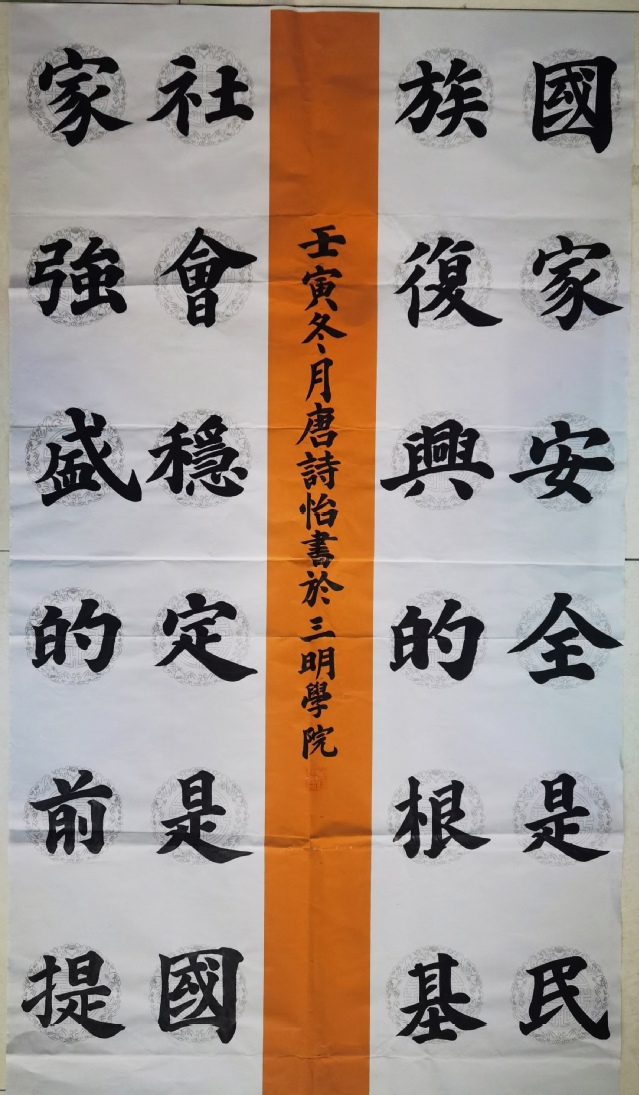 國家安全是民
族復興的根基
社會穩定是國
家強盛的前提
壬寅冬月唐詩怡書於三明學院